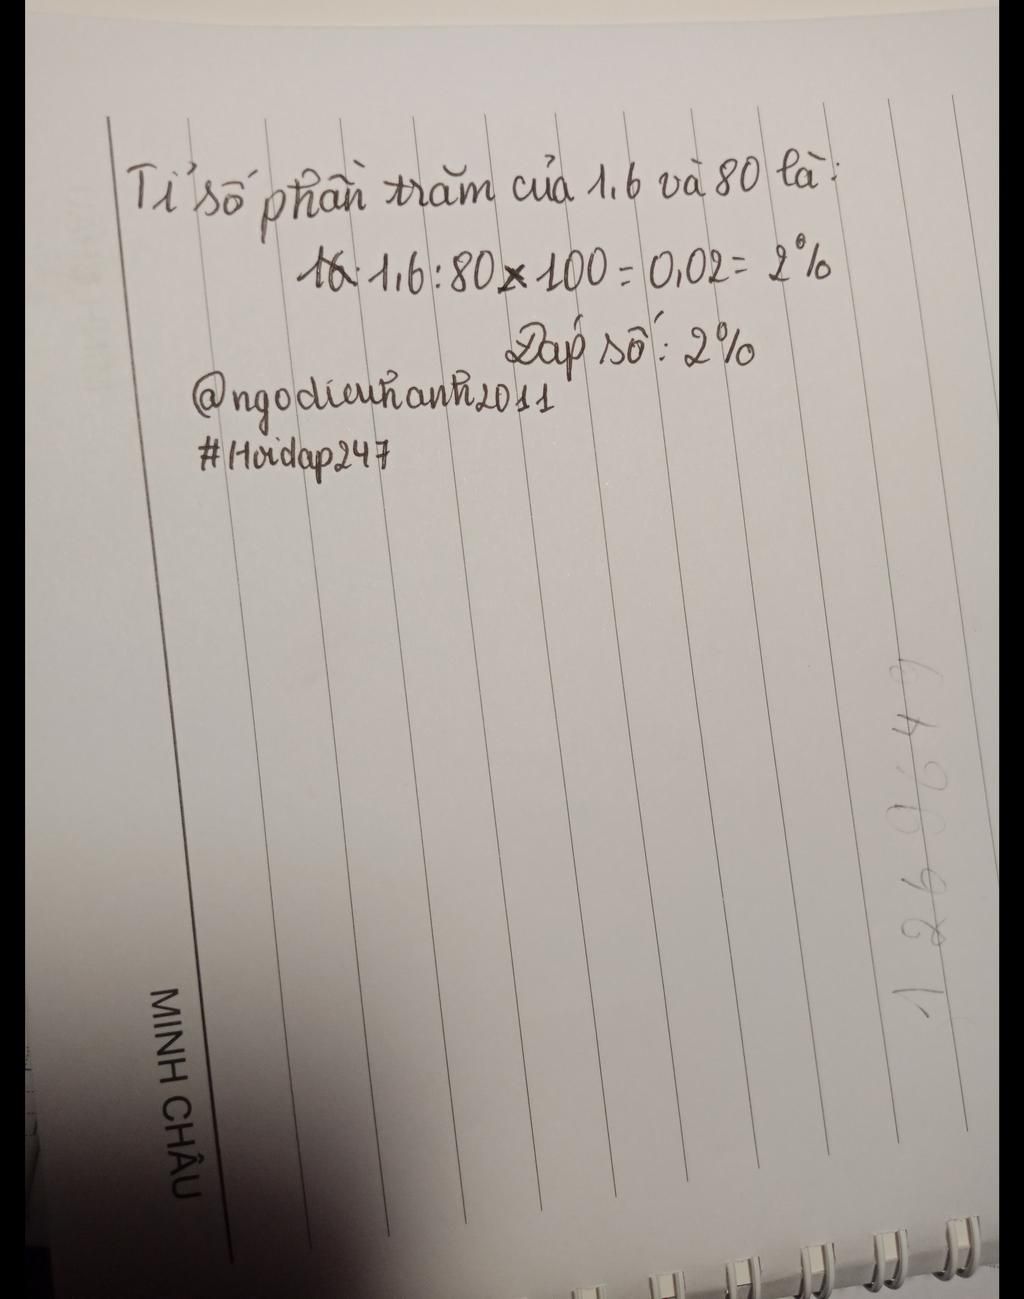 Tỉ số phần trăm của 1,6 và 80 là:
1,6 : 80 x 100 = 0,02 = 2%
Đáp số: 2%
@ngodieuhanh2011
#Hoidap247
MINH CHÂU